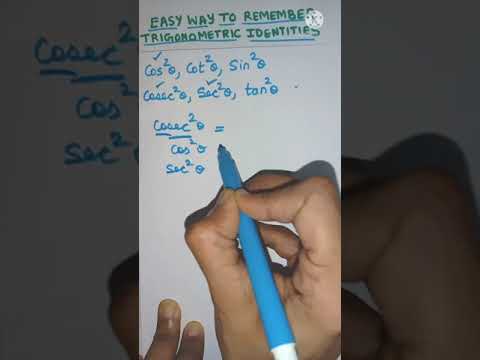 EASY WAY TO REMEMBER
TRIGONOMETRIC IDENTITIES
Cos²θ, Cot²θ, Sin²θ
Cosec²θ, Sec²θ, tan²θ
Cosec²θ =
Cos²θ
Sec²θ